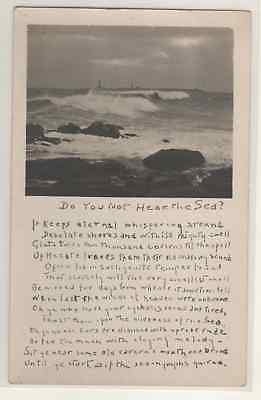 Do You Not Hear the Sea?
It keeps eternal whisperings around
Desolate shores and with its mighty swell
Gluts twice ten thousand caverns till the spell
Of Hecate leaves them their old shadowy sound
Often 'tis in such gentle temper found
That scarcely will the very smallest shell
Be moved for days from whence it sometime fell
When last the winds of heaven were unbound
Oh ye who have your eyeballs vexed and tired,
Feast them upon the wideness of the Sea.
Oh ye whose Ears are dinned with uproar rude
Or fed too much with cloying melody –
Sit ye near some old cavern's mouth and brood
Until ye start as if the sea-nymphs quired.